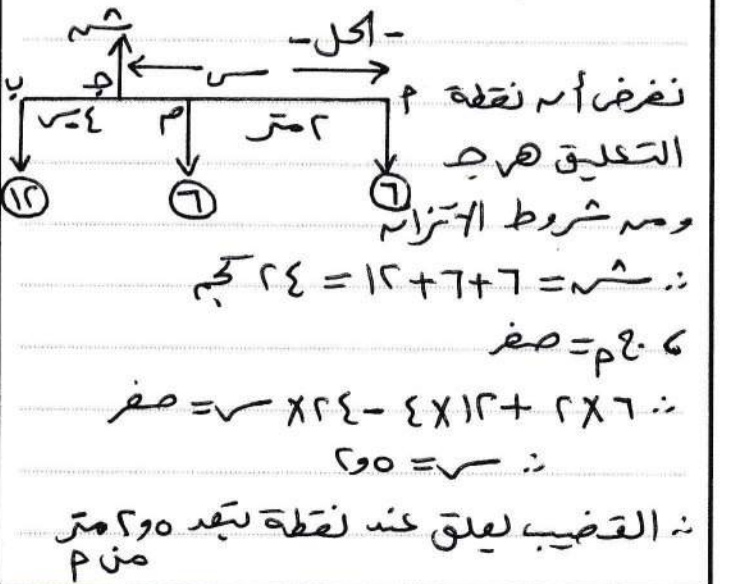 -الحل-
شَ
س
ب جـ ٤-س م ٢متر أ
١٢ ٦ ٦
نفرض أن نقطة
التعليق هى جـ
ومن شروط الاتزان
∴ شَ = ٦+٦+١٢ = ٢٤ كجم
، جـ أ = صفر
∴ ٦×٢ + ١٢×٤ - ٢٤×س = صفر
∴ س = ٢٫٥
∴ القضيب يعلق عند نقطة تبعد ٢٫٥ متر
من أ